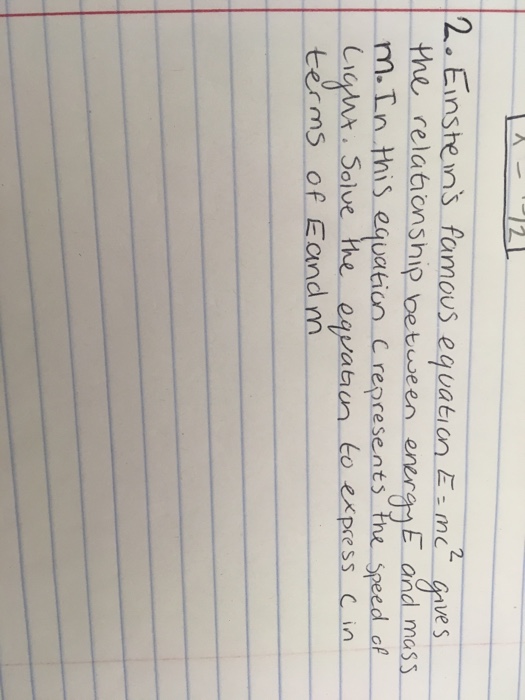 2. Einstein's famous equation E = mc²  gives
the relationship between energy E and mass
m. In this equation c represents the speed of
Light. Solve the equation to express c in
terms of E and m